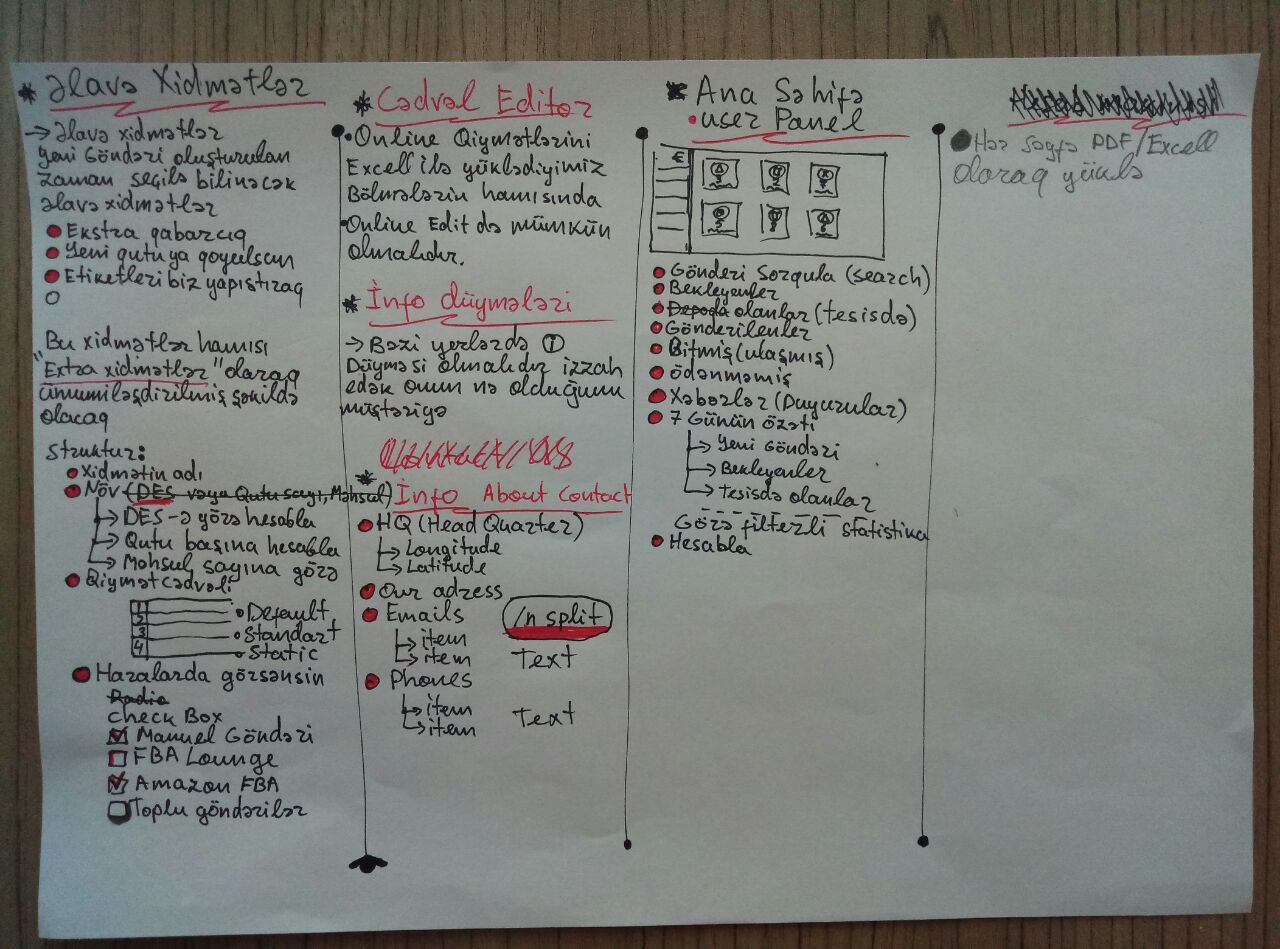 * Əlavə Xidmətlər
→ Əlavə xidmətlər
Yeni Göndəri oluşturulan
zaman seçilə bilinəcək
əlavə xidmətlər
Ekstra qabarcıq
Yeni qutuya qoyulsun
Etiketleri biz yapıştıraq
Bu xidmətlər hamısı
"Extra xidmətlər" olaraq
ümumiləşdirilmiş şəkildə
olacaq
Struktur:
Xidmətin adı
Növ (DES vəya Qutu sayı, Məhsul)
DES-ə görə hesabla
Qutu başına hesabla
Məhsul sayına görə
Qiymət cədvəli
1
2 Default
3 Standart
4 Static
Haralarda görsənsin
Radio
check Box
Manuel Göndəri
FBA Lounge
Amazon FBA
Toplu göndərilər
* Cədvəl Editər
• Online Qiymətlərini
Excell ilə yüklədiyimiz
Bölmələrin hamısında
• Online Edit də mümkün
olmalıdır.
* İnfo düymələri
→ Bəzi yerlərdə i
Düyməsi olmalıdır izzah
edək onun nə olduğunu
müştəriyə
*
İnfo About Contact
HQ (Head Quarter)
Longitude
Latitude
Our adress
Emails /n split
item
item Text
Phones
item Text
item
* Ana Səhifə
• User Panel
€
Gönderi Sorqula (search)
Bekleyenler
Depoda olanlar (tesisdə)
Gönderilenler
Bitmiş (ulaşmış)
ödənməmiş
Xəbərlər (Duyurular)
7 Günün özəti
Yeni Göndəri
Bekleyenler
Tesisdə olanlar
Görə filterli statistika
Hesabla
Hər səyfə PDF/Excell
olaraq yüklə